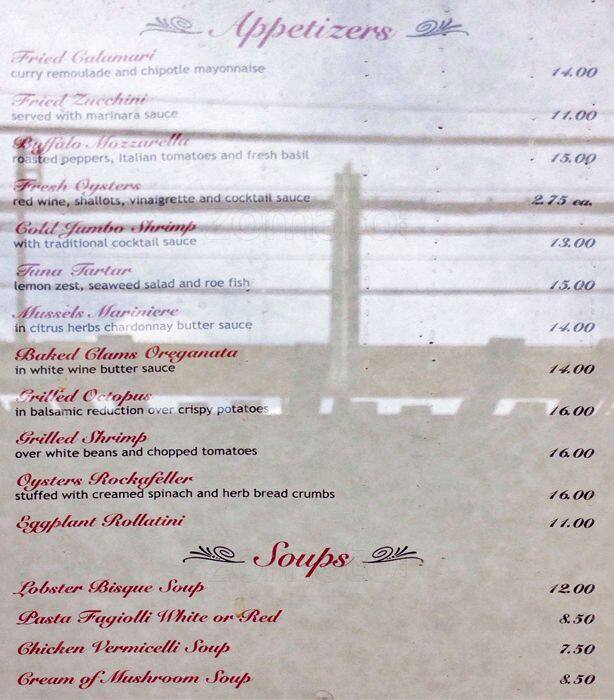 Appetizers
Fried Calamari
curry remoulade and chipotle mayonnaise 14.00
Fried Zucchini
served with marinara sauce 11.00
Buffalo Mozzarella
roasted peppers, Italian tomatoes and fresh basil 15.00
Fresh Oysters
red wine, shallots, vinaigrette and cocktail sauce 2.75 ea.
zomato
Cold Jumbo Shrimp
with traditional cocktail sauce 13.00
Tuna Tartar
lemon zest, seaweed salad and roe fish 15.00
Mussels Mariniere
in citrus herbs chardonnay butter sauce 14.00
Baked Clams Oreganata
in white wine butter sauce 14.00
Grilled Octopus
in balsamic reduction over crispy potatoes 16.00
Grilled Shrimp
over white beans and chopped tomatoes 16.00
Oysters Rockafeller
stuffed with creamed spinach and herb bread crumbs 16.00
Eggplant Rollatini 11.00
Soups
Lobster Bisque Soup 12.00
Pasta Fagiolli White or Red 8.50
Chicken Vermicelli Soup 7.50
Cream of Mushroom Soup 8.50